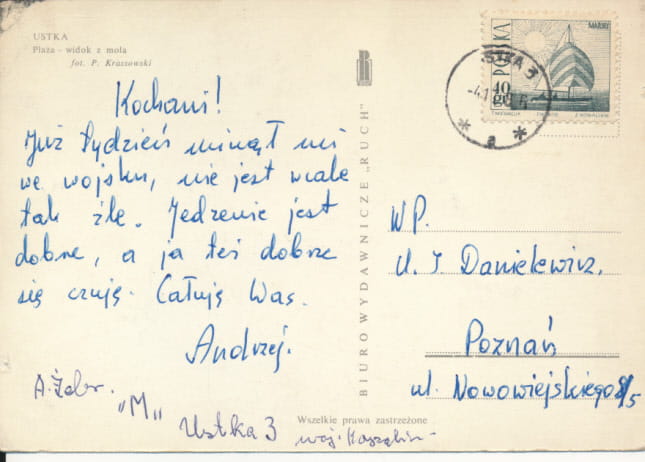 USTKA
Plaża - widok z mola
fot. P. Krassowski
Kochani!
Już tydzień minął mi
we wojsku, nie jest wcale
tak źle. Jedzenie jest
dobre, a ja też dobrze
się czuję. Całuję Was.
Andrzej.
"M"
Ustka 3
woj. Koszalin
BIURO WYDAWNICZE „RUCH"
Wszelkie prawa zastrzeżone
POLSKA
40 gr
USTKA 3
a
WP.
Danielewicz,
Poznań
ul. Nowowiejskiego 8/5